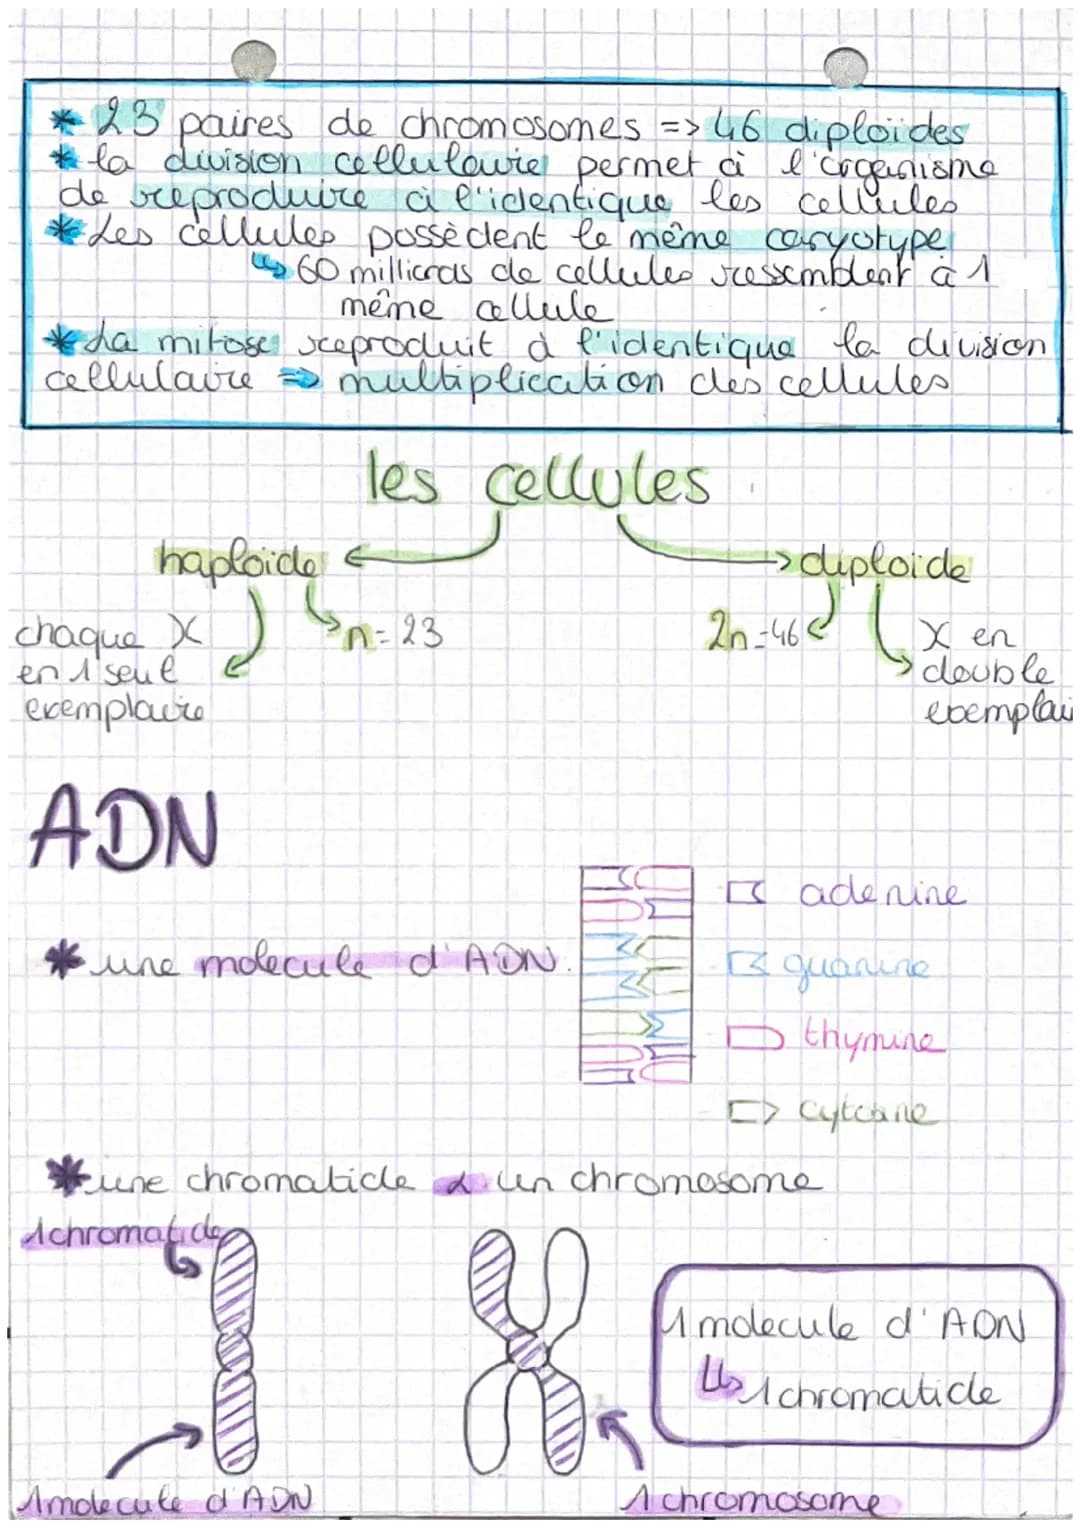 * 23 paires de chromosomes => 46 diploïdes
* la division cellulaire permet à l'organisme
de reproduire à l'identique les cellules
* Les cellules possèdent le même caryotype
↳ 60 milliards de cellules ressemblent à 1
même cellule
* La mitose reproduit à l'identique la division
cellulaire => multiplication des cellules
les cellules
haploïde
diploïde
chaque X
en 1 seul
exemplaire
n = 23
2n = 46
X en
double
exemplai
ADN
* une molecule d'ADN.
adenine
guanine
thymine
cytosine
* une chromatide & un chromosome
1 chromatide
1 molecule d'ADN
↳ 1 chromatide
1 molecule d'ADN
1 chromosome